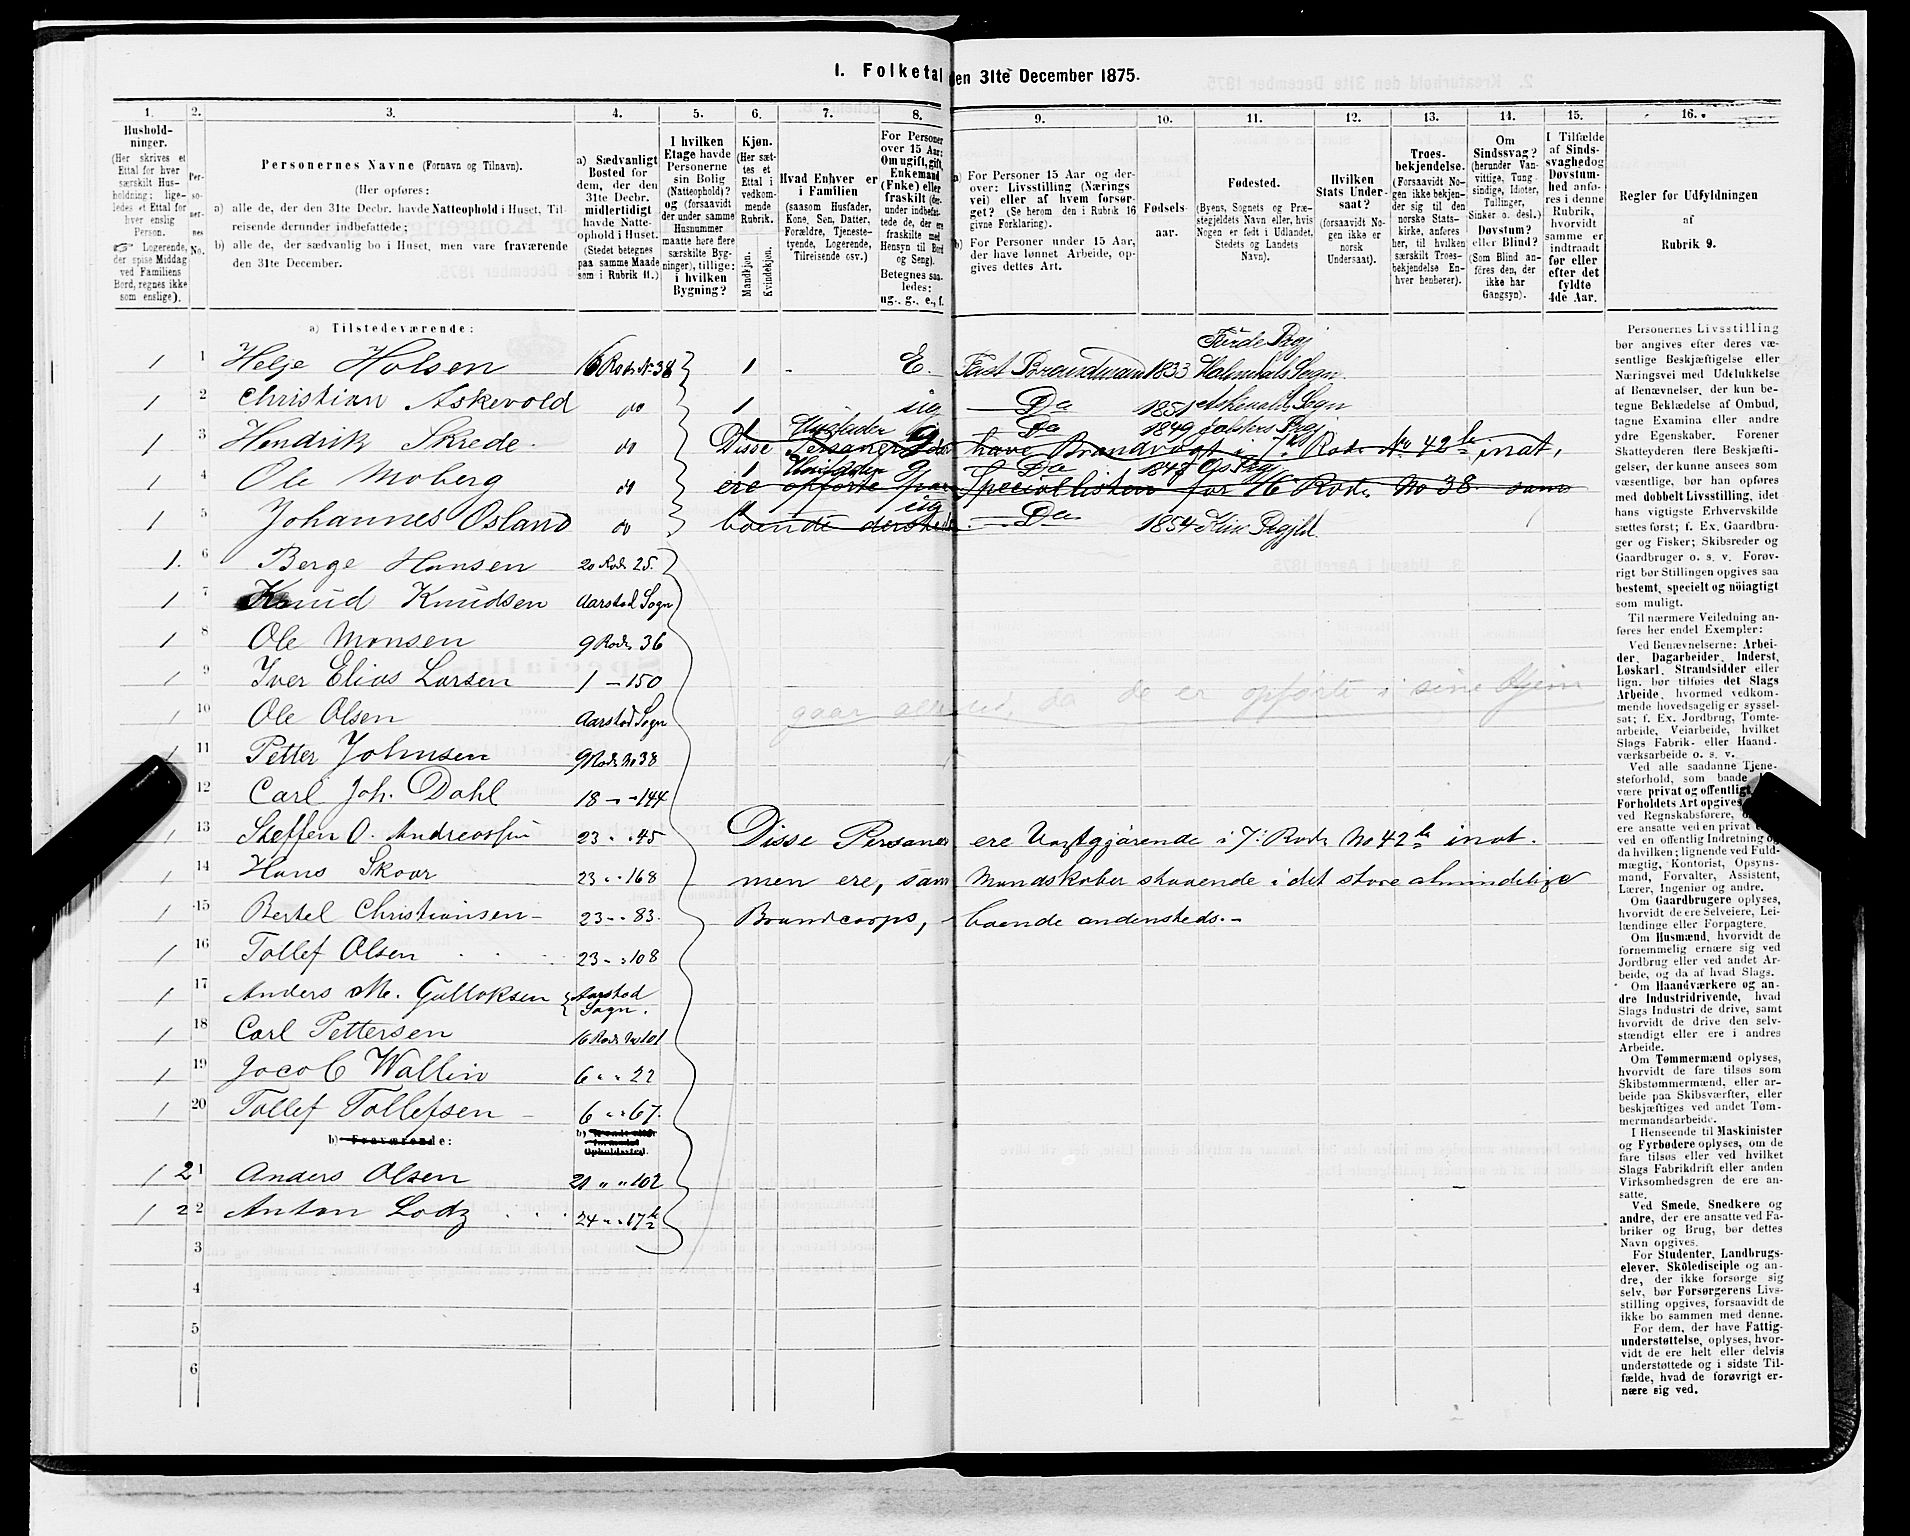 1. Folketal den 31te December 1875.
1. 2. 3. 4. 5. 6. 7. 8. 9. 10. 11. 12. 13. 14. 15. 16.
Hushold-
ninger.
(Her skrives et
Ettal for hver
særskilt Hus-
holdning; lige-
ledes et Ettal for
hver enslig
Person.
☞ Logerende,
der spise Middag
ved Familiens
Bord, regnes ikke
som enslige).
Per-
so-
ner-
nes
No.
Personernes Navne (Fornavn og Tilnavn).
(Her opføres:
a) alle de, der den 31te Decbr. havde Natteophold i Huset, Til-
reisende derunder indbefattede;
b) alle de, der sædvanlig bo i Huset, men vare fraværende
den 31te December.
a) Sædvanligt
Bosted for
dem, der den
31te Decbr.
midlertidigt
havde Natte-
ophold i Huset.
(Stedet betegnes
paa samme Maade
som i Rubrik 11.)
I hvilken
Etage havde
Personerne
sin Bolig
(Natteophold)?
og (forsaavidt
der under samme
Husnummer
maatte høre flere
særskilte Byg-
ninger), tillige:
i hvilken
Bygning?
Kjøn.
(Her sæt-
tes et
Ettal i
vedkom-
mende
Rubrik.
Mandkjøn.
Kvindekjøn.
Hvad Enhver er
i Familien
(saasom Husfader,
Kone, Søn, Datter,
Forældre, Tjeneste-
tyende, Logerende,
Tilreisende osv.)
For Personer
over 15 Aar:
Om ugift, gift,
Enkemand
(Enke) eller
fraskilt (der-
under indbefat-
tede de, der ere
fraskilte med
Hensyn til Bord
og Seng).
Betegnes saa-
ledes:
ug., g., e., f.
a) For Personer 15 Aar og der-
over: Livsstilling (Nærings
vei) eller af hvem forsør-
get? (Se herom den i Rubrik 16
givne Forklaring).
b) For Personer under 15 Aar,
der have lønnet Arbeide, op-
gives dettes Art.
Fødsels-
aar.
Fødested.
(Byens, Sognets og Præ-
stegjeldets Navn eller, hvis
Nogen er født i Udlandet,
Stedets og Landets
Navn).
Hvilken
Stats Under-
saat?
(forsaavidt No-
gen ikke er
norsk
Undersaat).
Troes-
bekjendelse.
(Forsaavidt No-
gen ikke bekjen-
der sig til den
norske Stats-
kirke, anføres
her, til hvilken
særskilt Troes-
bekjendelse En-
hver henhører).
Om
Sindssvag?
(herunder Van-
vittige, Tung-
sindige, Idioter,
Tullinger,
Sinker o. desl.)
Døvstum?
eller Blind?
(Som Blind an-
føres den, der
ikke har
Gangsyn).
I Tilfælde
af Sinds-
svaghed og
Døvstum-
hed anfø-
res i denne
Rubrik,
hvorvidt
samme er
indtraadt
før eller
efter det
fyldte
4de Aar.
Regler før Udfyldningen
af
Rubrik 9.
a) Tilstedeværende:
Førde Pgj
1 1 Helje Holsen 16 Rode No 38 1 - E. Fast Brandmand 1833 Holmdals Sogn
1 2 Christian Askevold do 1 ug Do 1851 Askevold Sogn
1 3 Hendrik Skrede do Husfader g Do 1849 Jølsters Pgj
Disse Personer have Brandvagt i 7de Rode No 42 b inat,
1 4 Ole Moberg do 1 Husfader g Do
ere opførte paa Speciallisten for 16 Rode No 38 som
1 5 Johannes Osland do ug Do 1854 Kin Prgjld.
boende dersteds.
1. 6 Berge Hansen 20 Rode 25.
1 7 Knud Knudsen Aarstad Sogn
1 8 Ole Monsen 9 Rode 36
1 9 Iver Elias Larsen 1 - 150
1 10 Ole Olsen Aarstad Sogn
gaar alle ud, da de er opførte i sine Hjem
1 11 Petter Johnsen 9 Rode No 38
12 Carl Joh. Dahl 18 - - 144
1 13 Steffen O. Andreassen 23 " " 45 Disse Personer ere Vagtgjørende i 7: Rode No 42 b inat.
1 14 Hans Skaar 23 " " 168 men ere, som Mandskaber staaende i det store almindelige
1 15 Bertel Christiansen - 23 - " 83. Brandcorps, - boende andensteds. -
1 16 Tollef Olsen 23 - " 108
1 17 Anders M. Gulloksen Aarstad
Sogn.
1 18 Carl Pettersen 16 Rode No 101
1 19 Jacob Wallin 6 " " 22
1 20 Tollef Tollefsen - 6 " " 67.
b) Fraværende: b)
Opholdssted.
1 21 Anders Olsen 20 " " 102
1 22 Anton Lodz 24 " " 17 b
3
4
5
6
Personernes Livsstilling
bør angives efter deres væ-
sentlige Beskjæftigelse eller
Næringsvei med Udelukkelse
af Benævnelser, der kun be-
tegne Beklædelse af Ombud,
tagne Examina eller andre
ydre Egenskaber. Forener
Skatteyderen flere Beskjæfti-
gelser, der kunne ansees som
væsentlige, bør han opføres
med dobbelt Livsstilling, idet
hans vigtigste Erhvervskilde
sættes først; f. Ex. Gaardbru-
ger og Fisker; Skibsreder og
Gaardbruger o. s. v. Forøv-
rigt bør Stillingen opgives saa
bestemt, specielt og nöiagtigt
som muligt.
Til nærmere Veiledning an-
føres her endel Exempler:
Ved Benævnelserne: Arbei-
der, Dagarbeider, Inderst,
Løskarl, Strandsidder eller
lign. bør tilføies det Slags
Arbeide, hvormed vedkom-
mende hovedsagelig er syssel-
sat; f. Ex. Jordbrug, Tomte-
arbeide, Veiarbeide, hvilket
Slags Fabrik- eller Haand-
værksarbeide o. s. v.
Ved alle saadanne Tjene-
steforhold, som baade
være privat og offentligt,
Forholdets Art opgives,
ved Regnskabsførere,
ere ansatte ved en privat
ved en offentlig Indretning
da hvilken; lignende ved Fuld-
mægtig, Kontorist, Opsyns-
mand, Forvalter, Assistent,
Lærer, Ingeniør og andre.
Om Gaardbrugere oplyses,
hvorvidt de ere Selveiere, Lei-
lændinge eller Forpagtere.
Om Husmænd, hvorvidt de
fornemmelig ernære sig ved
Jordbrug eller ved andet Ar-
beide, og da af hvad Slags.
Om Haandværkere og an-
dre Industridrivende, hvad
Slags Industri de drive, samt
hvorvidt de drive den selv-
stændigt eller ere i andres
Arbeide.
Om Tømmermænd oplyses,
hvorvidt de fare tilsøs som
Skibstømmermænd, eller ar-
beide paa Skibsværfter, eller
beskjæftiges ved andet Tøm-
mermandsarbeide.
I Henseende til Maskinister
og Fyrbødere oplyses, om de
fare tilsøs eller ved hvilket
Slags Fabrikdrift eller anden
Virksomhedsgren de ere an-
satte.
Ved Smede, Snedkere og
andre, der ere ansatte ved Fa-
briker og Brug, bør dettes
Navn opgives.
For Studenter, Landbrugs-
elever, Skoledisciple og an-
dre, der ikke forsørge sig
selv, bør Forsørgerens Livs-
stilling opgives, forsaavidt de
ikke bo sammen med denne.
For dem, der have Fattig-
understøttelse, oplyses, hvor-
vidt de ere helt eller delvis
understøttede og i sidste Til-
fælde, hvad de forøvrigt er-
nære sig ved.